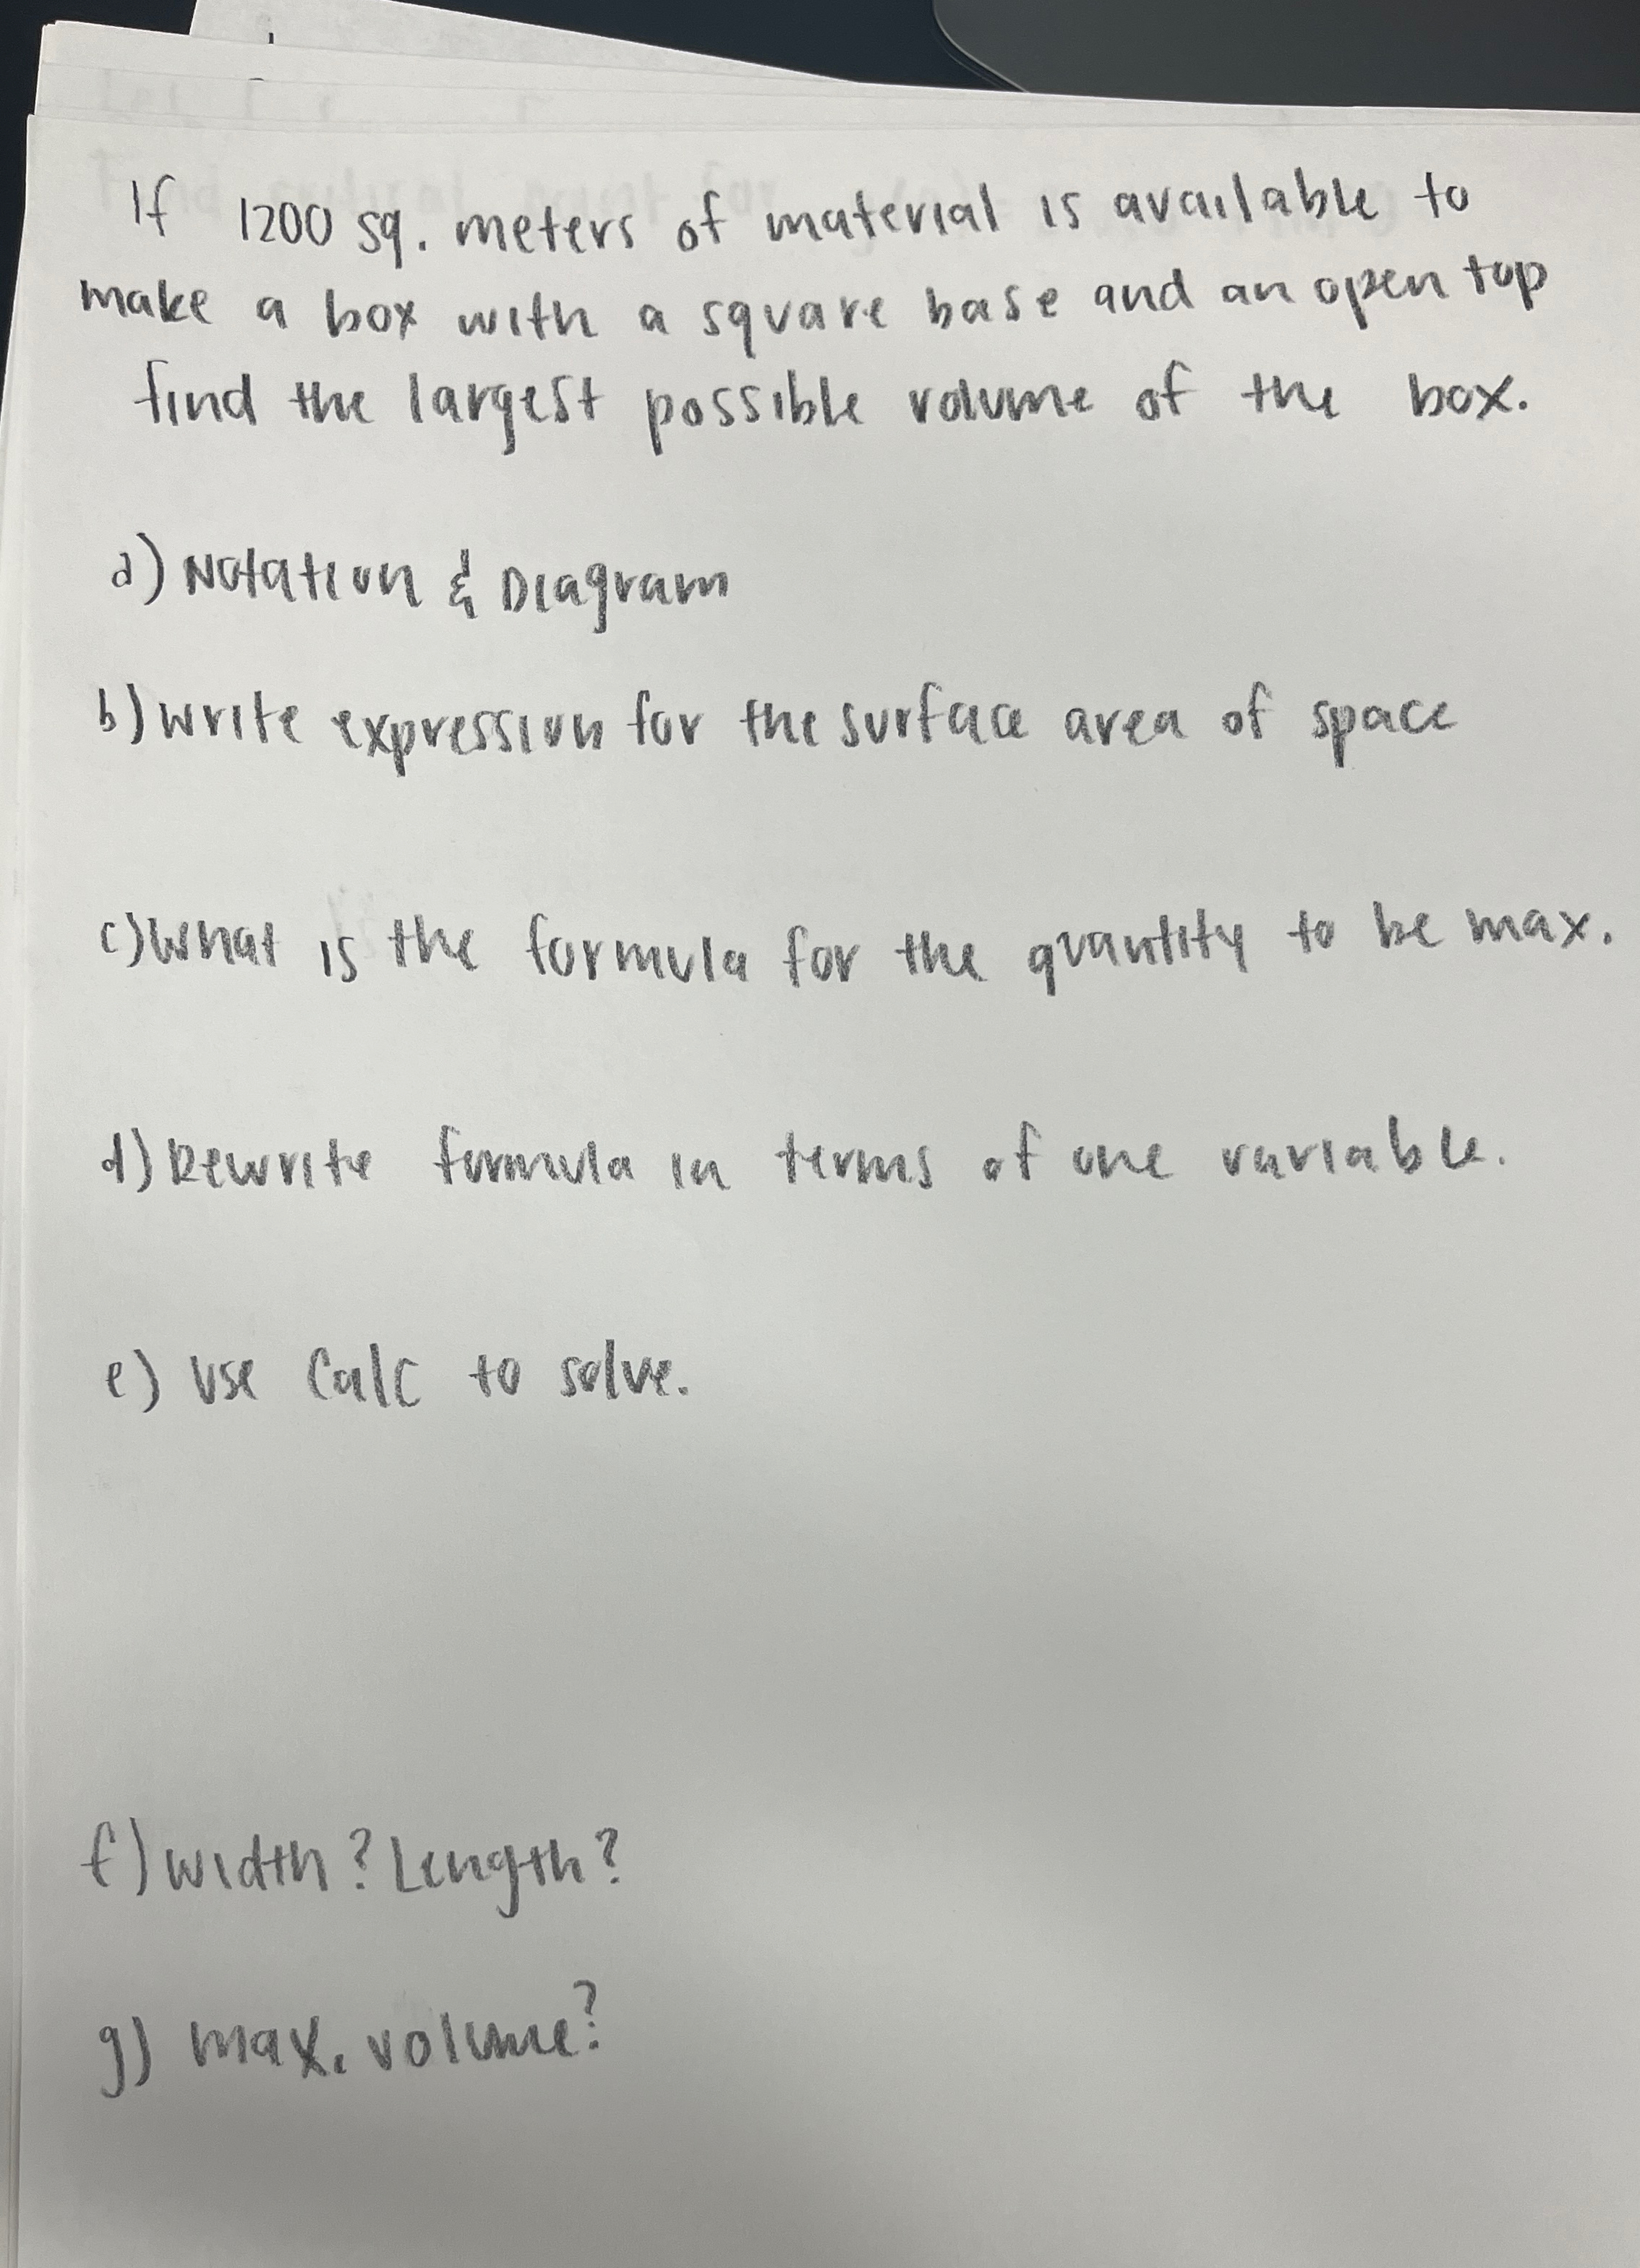 If 1200 sq. meters of material is available to
make a box with a square base and an open top
find the largest possible volume of the box.
a) Notation & Diagram
b) write expression for the surface area of space
c) What is the formula for the quantity to be max.
d) Rewrite formula in terms of one variable.
e) Use Calc to solve.
f) width? Length?
g) max. volume?